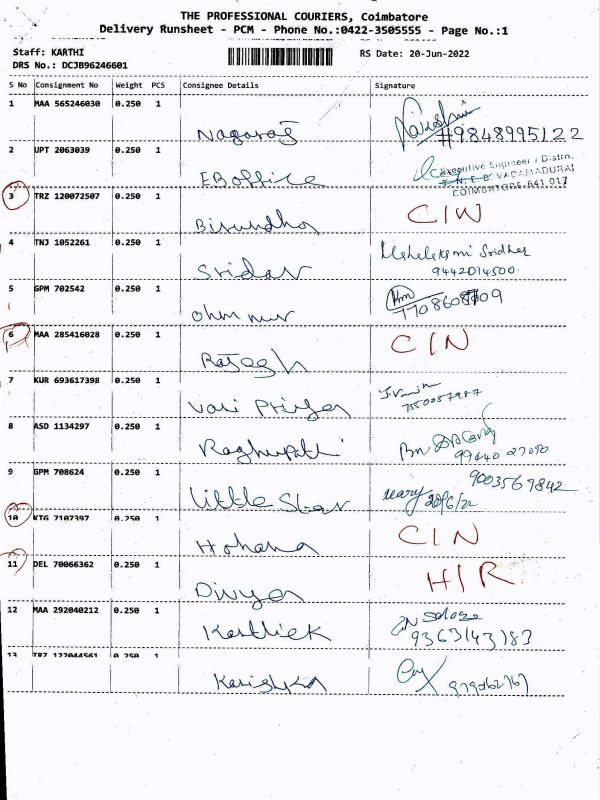 THE PROFESSIONAL COURIERS, Coimbatore
Delivery Runsheet - PCM - Phone No.:0422-3505555 - Page No.:1
Staff: KARTHI
RS Date: 20-Jun-2022
DRS No.: DCJB96246601
S No Consignment No Weight PCS Consignee Details Signature
1 MAA 565246030 0.250 1
Nagaraj #9848995122
2 UPT 2063039 0.250 1
EB office Executive Engineer / Distn.
T. N. E. B. VADAMADURAI
COIMBATORE-641 017
3 TRZ 120072507 0.250 1
C/N
4 TNJ 1052261 0.250 1
Sridar Sridhar
9442014500
5 GPM 702542 0.250 1
6 MAA 285416028 0.250 1
Rajesh C/N
7 KUR 693617398 0.250 1
Vani Priya
8 ASD 1134297 0.250 1
Raghupathi 99440 27090
9 GPM 708624 0.250 1
Little Star 9003567842
20/6/22
10 KTG 7107397 0.250 1
Hohana C/N
11 DEL 70066362 0.250 1
Divya H/R
12 MAA 292040212 0.250 1
Karthick 9363143183
13 TRZ 122044561 0.250 1
Karishka